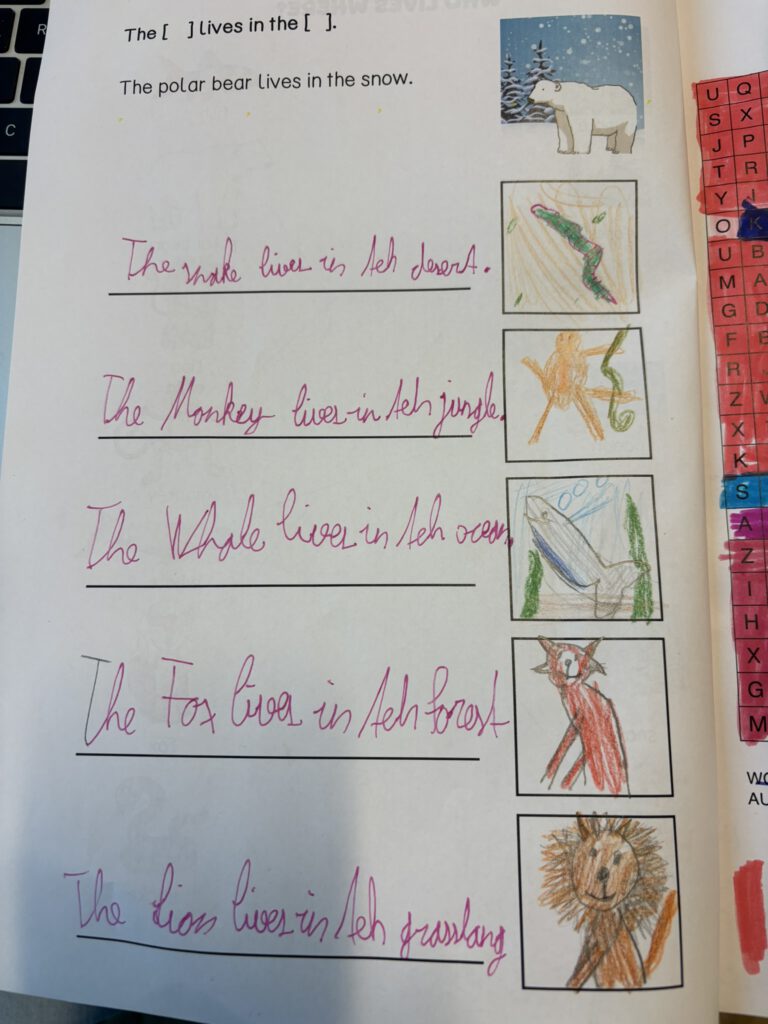 The [ ] lives in the [ ].
The polar bear lives in the snow.
The snake lives in teh desert.
The Monkey lives in teh jungle.
The Whale lives in teh ocean.
The Fox lives in teh forest
The Lion lives in teh grasslang
R
C
U Q
S X
J P
T R
Y I
O K
U B
M A
G D
F E
R
Z
X
K
S
A
Z
I
H
X
G
M
AU